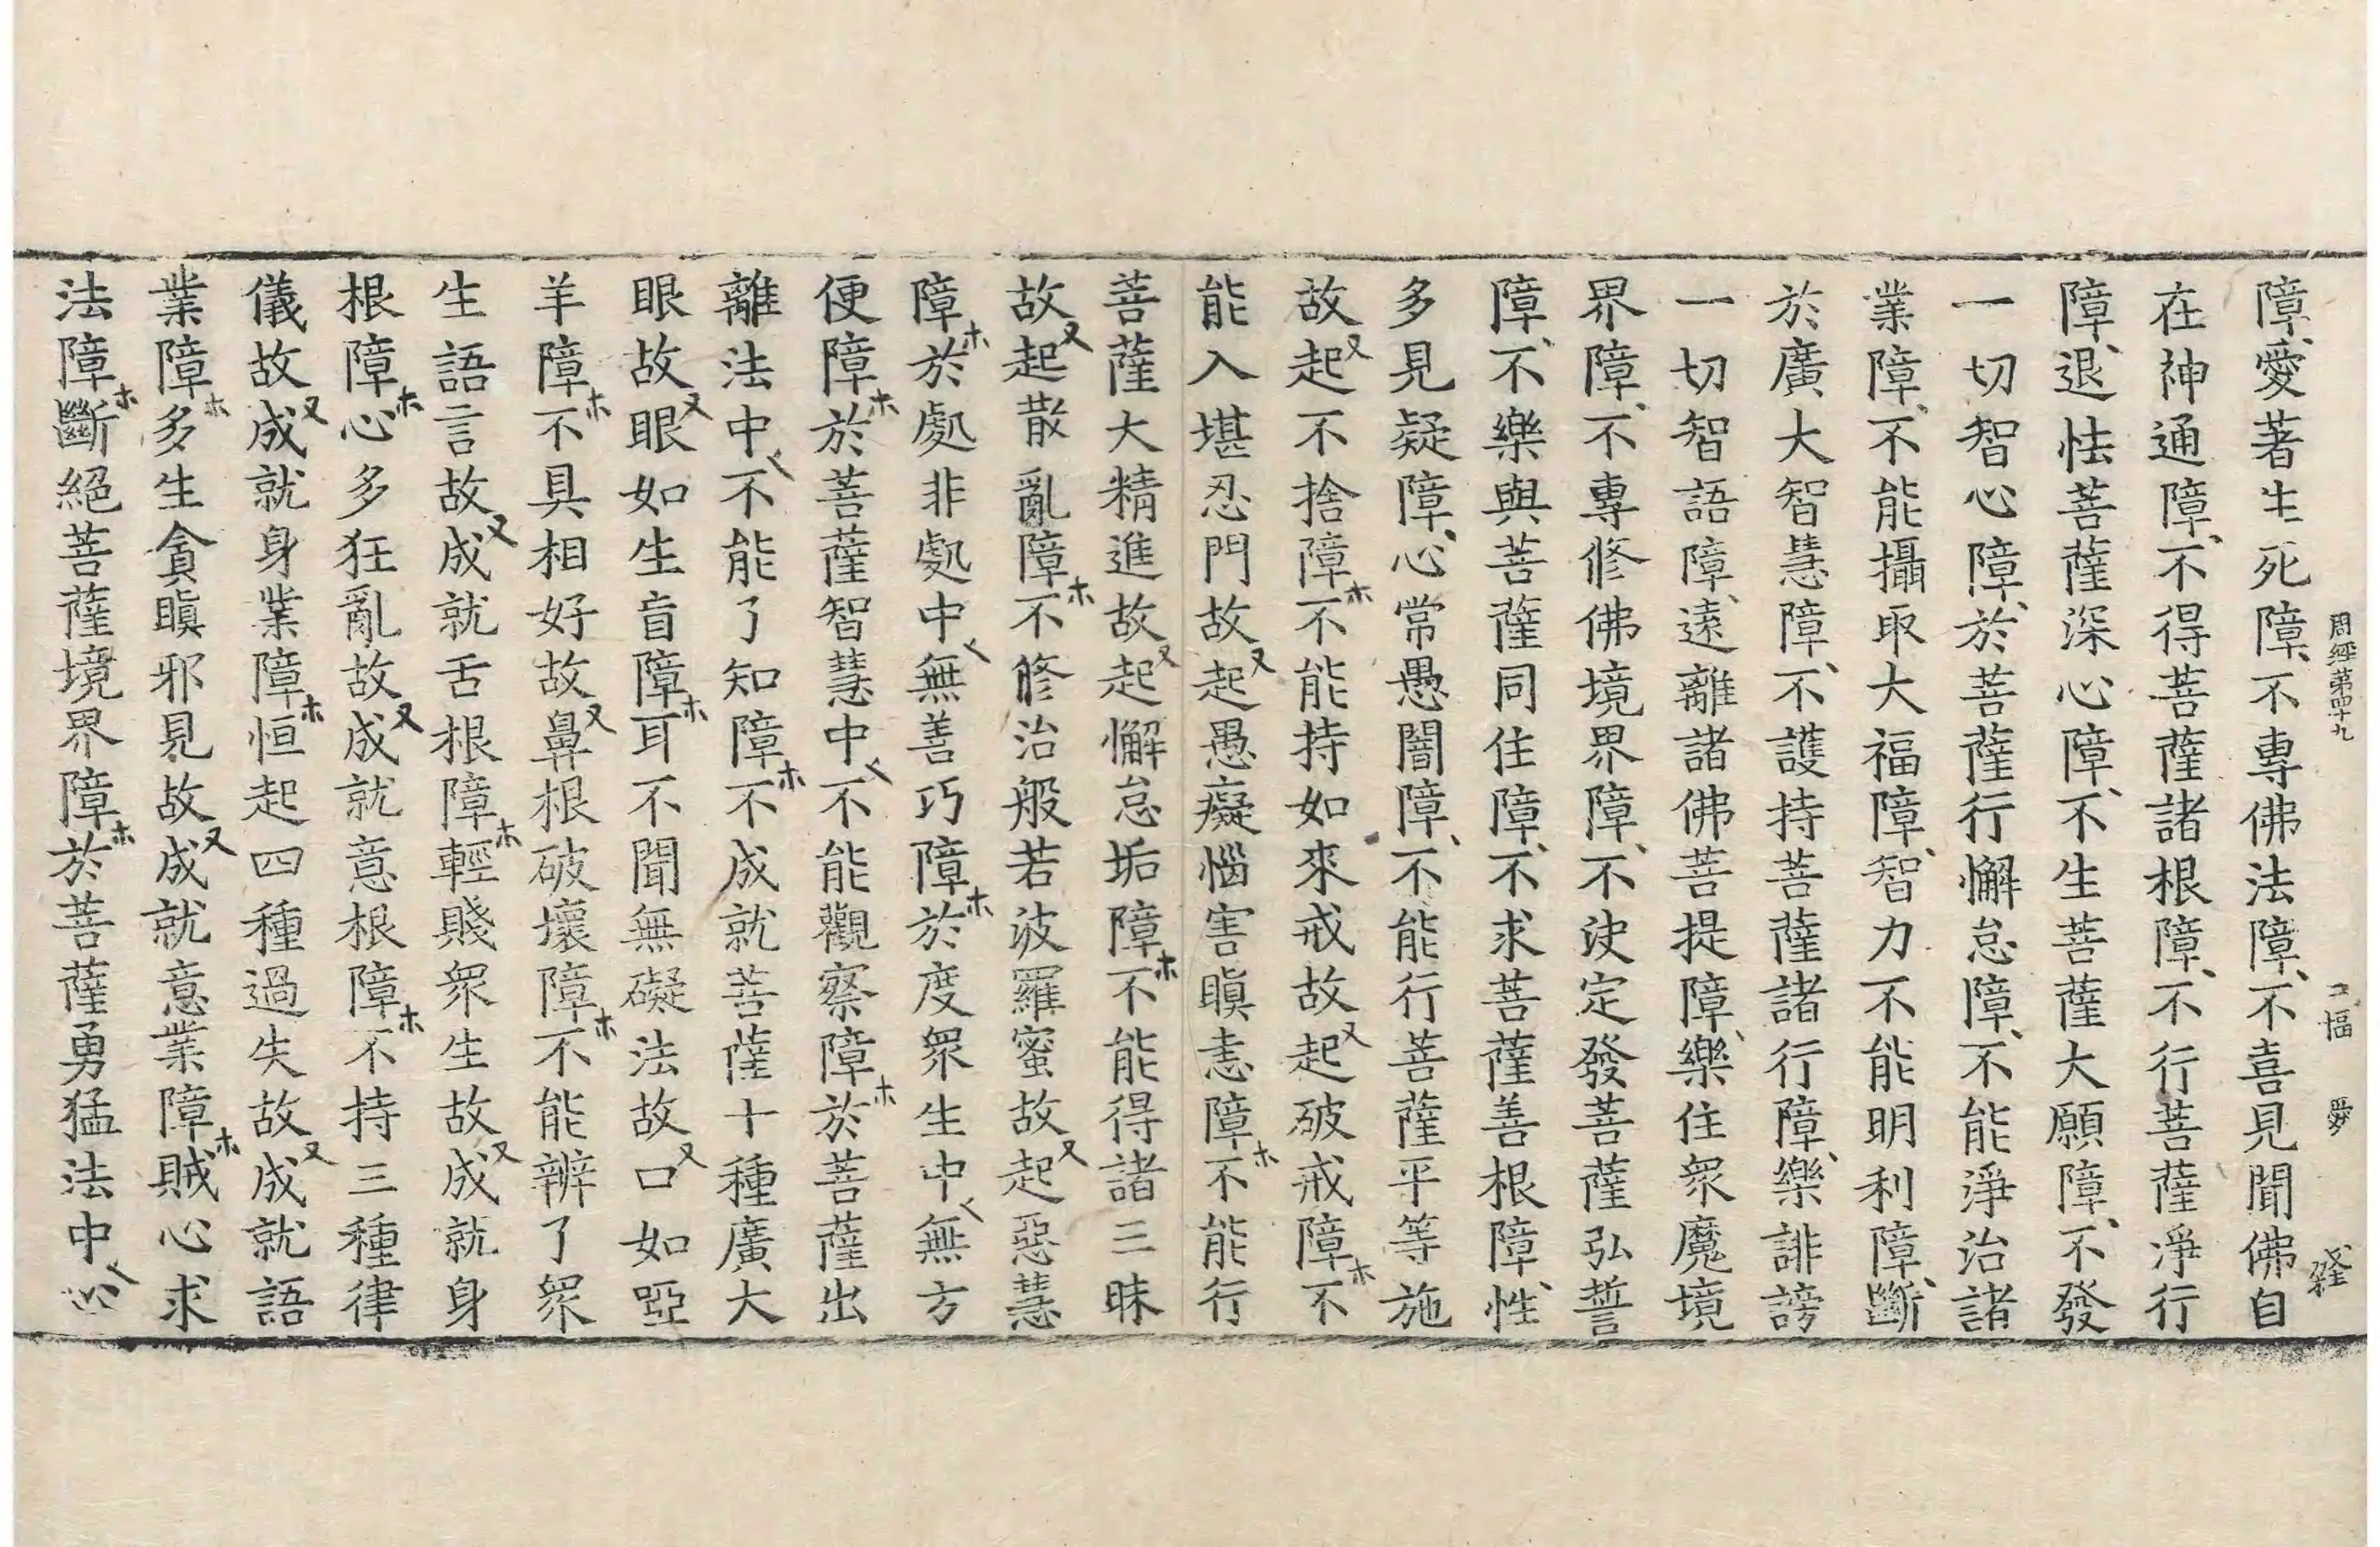 周經第四十九　二幅　愛
障愛著生死障不專佛法障不喜見聞佛自
在神通障不得菩薩諸根障不行菩薩淨行
障退怯菩薩深心障不生菩薩大願障不發
一切智心障於菩薩行懈怠障不能淨治諸
業障不能攝取大福障智力不能明利障斷
於廣大智慧障不護持菩薩諸行障樂誹謗
一切智語障遠離諸佛菩提障樂住衆魔境
界障不專修佛境界障不決定發菩薩弘誓
障不樂與菩薩同住障不求菩薩善根障性
多見疑障心常愚闇障不能行菩薩平等施
故起不捨障不能持如來戒故起破戒障不
能入堪忍門故起愚癡惱害瞋恚障不能行
菩薩大精進故起懈怠垢障不能得諸三昧
故起散亂障不修治般若波羅蜜故起惡慧
障於處非處中無善巧障於度衆生中無方
便障於菩薩智慧中不能觀察障於菩薩出
離法中不能了知障不成就菩薩十種廣大
眼故眼如生盲障耳不聞無礙法故口如啞
羊障不具相好故鼻根破壞障不能辨了衆
生語言故成就舌根障輕賤衆生故成就身
根障心多狂亂故成就意根障不持三種律
儀故成就身業障恒起四種過失故成就語
業障多生貪瞋邪見故成就意業障賊心求
法障斷絕菩薩境界障於菩薩勇猛法中心